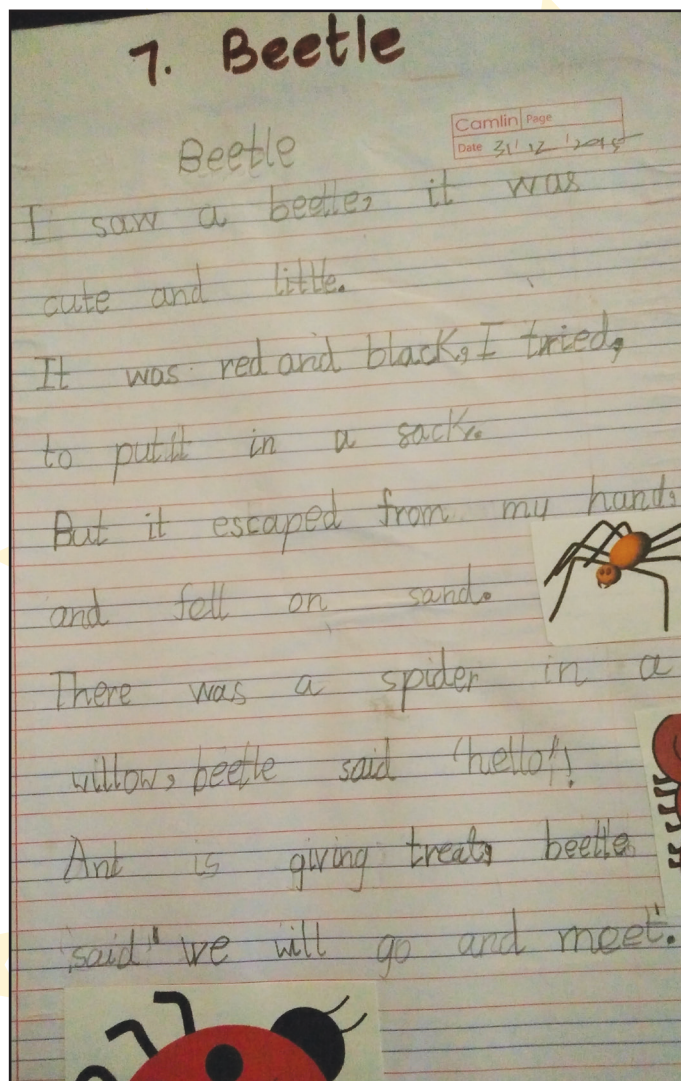 7. Beetle
Camlin Page
Date 31 12 2015
Beetle
I saw a beetle, it was
cute and little.
It was red and black, I tried,
to put it in a sack.
But it escaped from my hand,
and fell on sand.
There was a spider in a
willow, beetle said "hello"!
Ant is giving treat, beetle
said "we will go and meet".